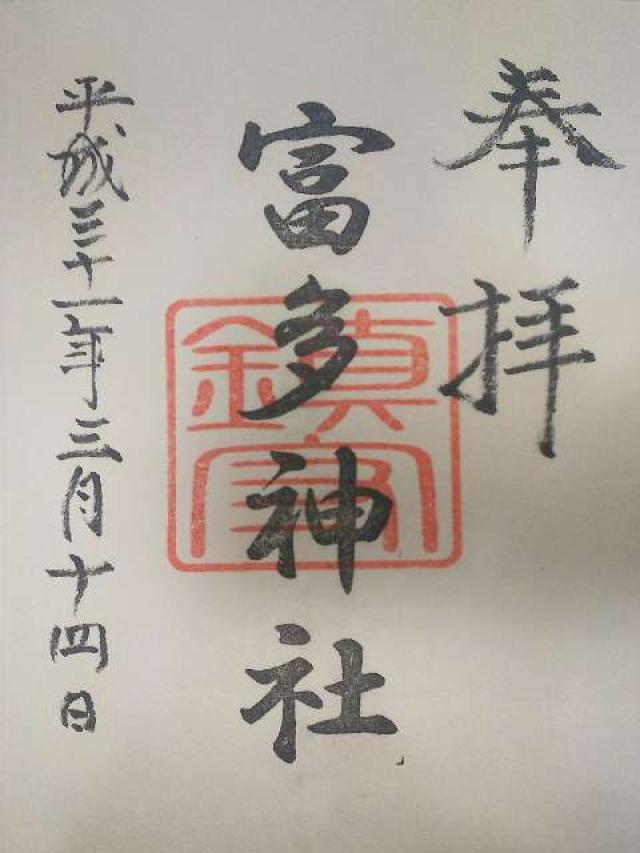 奉拝
富多神社
平成三十一年三月十四日